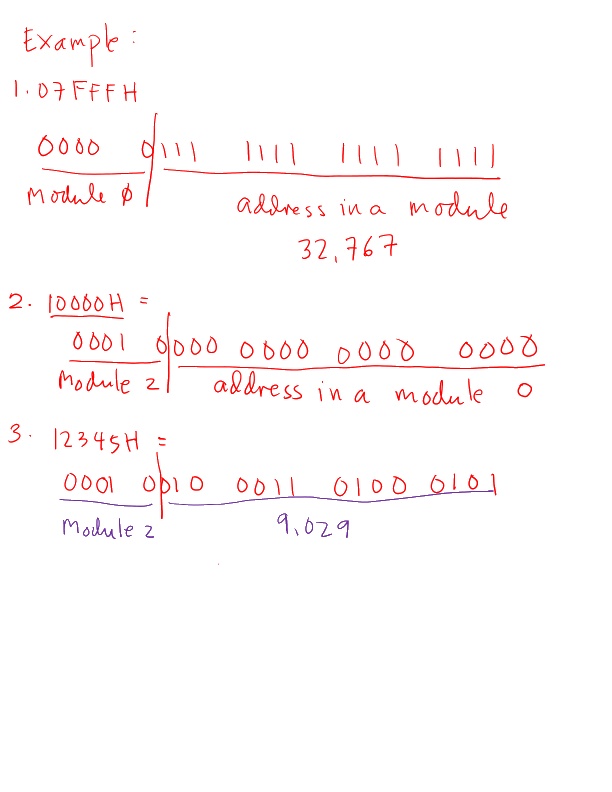 Example:
1. 07FFFH
0000 0|111 1111 1111 1111
Module ϕ address in a module
32,767
2. 10000H =
0001 0|000 0000 0000 0000
Module 2 address in a module 0
3. 12345H =
0001 0|010 0011 0100 0101
Module 2 9,029